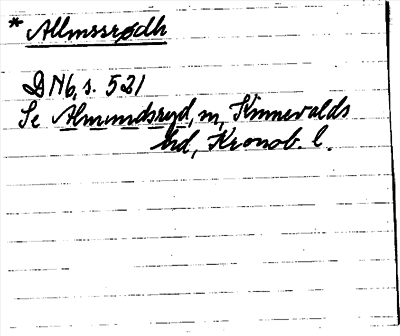 * Allmssrødh
DN6, s. 521
Se Almundsryd, sn, Kinnevalds
hd, Kronob. l.